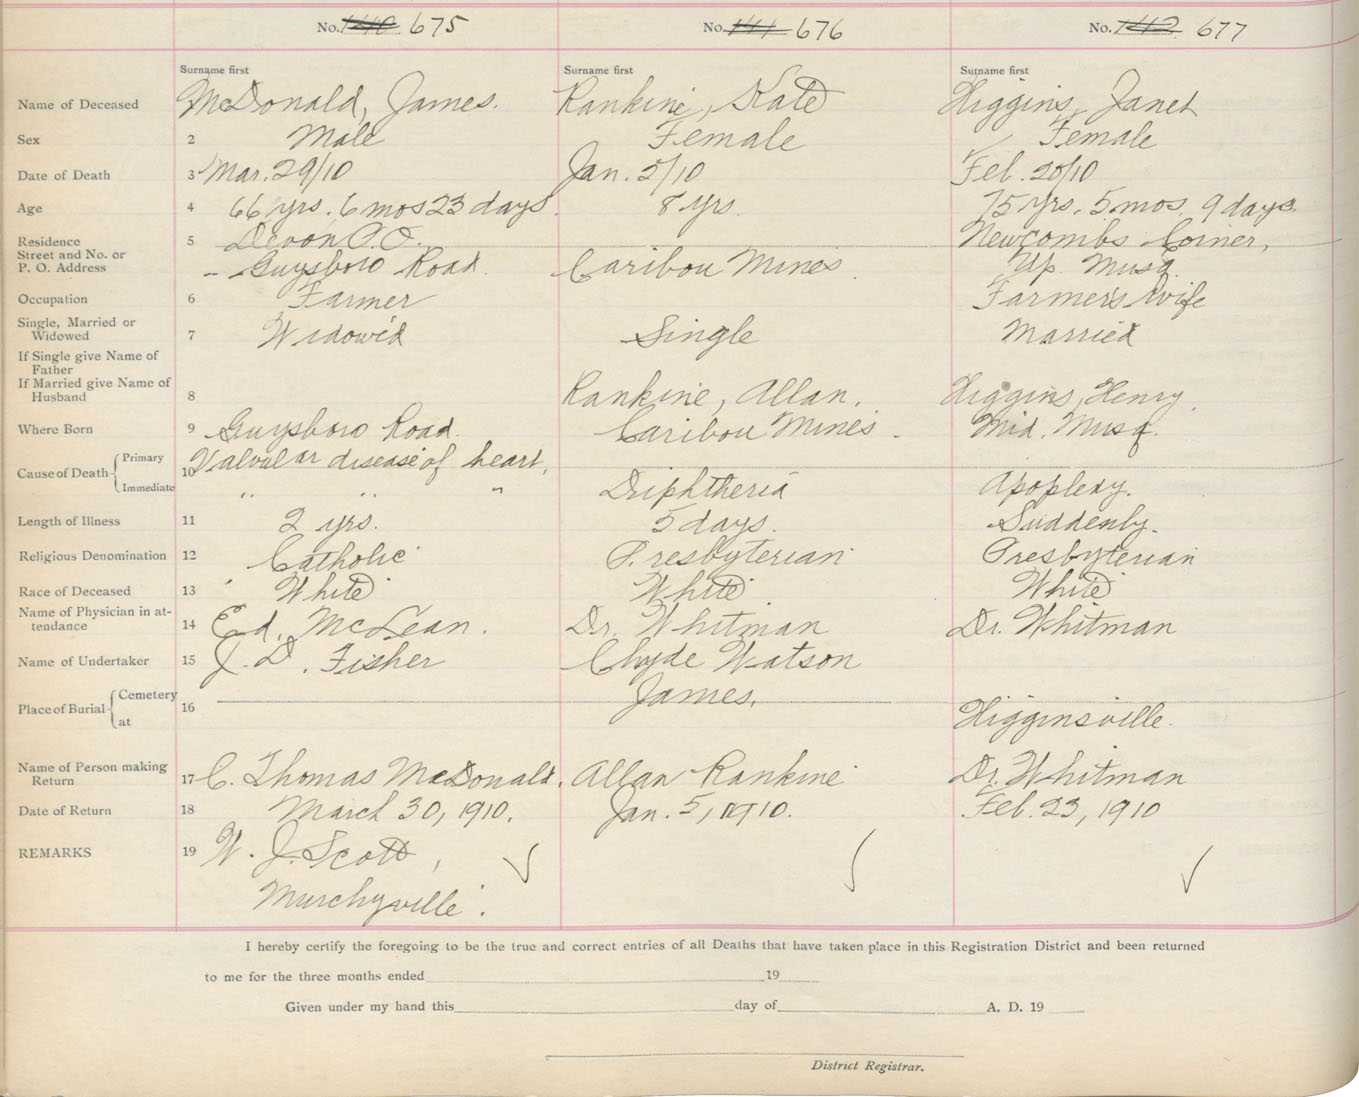 No. 675 No. 676 No. 677
Surname first Surname first Surname first
Name of Deceased McDonald, James. Rankine, Kate Higgins, Janet
Sex 2 Male Female Female
Date of Death 3 Mar. 29/10 Jan. 2/10 Feb. 20/10
Age 4 66 yrs. 6 mos 23 days. 8 yrs. 75 yrs. 5 mos. 9 days.
Residence 5 Devon P.O. Newcombs Corner,
Street and No. or
P. O. Address Guysboro Road. Caribou Mines. Up. Musq.
Occupation 6 Farmer Farmer's Wife
Single, Married or
Widowed 7 Widow'd Single Married
If Single give Name of
Father
If Married give Name of
Husband 8 Rankine, Allan. Higgins, Henry.
Where Born 9 Guysboro Road. Caribou Mines. Mid. Musq.
Cause of Death Primary 10 Valvular disease of heart,
Immediate " " " Diphtheria Apoplexy.
Length of Illness 11 2 yrs. 5 days. Suddenly.
Religious Denomination 12 Catholic Presbyterian Presbyterian
Race of Deceased 13 White White White
Name of Physician in at-
tendance 14 Ed. McLean. Dr. Whitman Dr. Whitman
Name of Undertaker 15 J. D. Fisher Clyde Watson
Place of Burial Cemetery 16 James.
at Higginsville.
Name of Person making
Return 17 C. Thomas McDonald. Allan Rankine Dr. Whitman
Date of Return 18 March 30, 1910. Jan. 5, 1910. Feb. 23, 1910
REMARKS 19 W. J. Scott,
Murchyville.
I hereby certify the foregoing to be the true and correct entries of all Deaths that have taken place in this Registration District and been returned
to me for the three months ended 19
Given under my hand this day of A. D. 19
District Registrar.